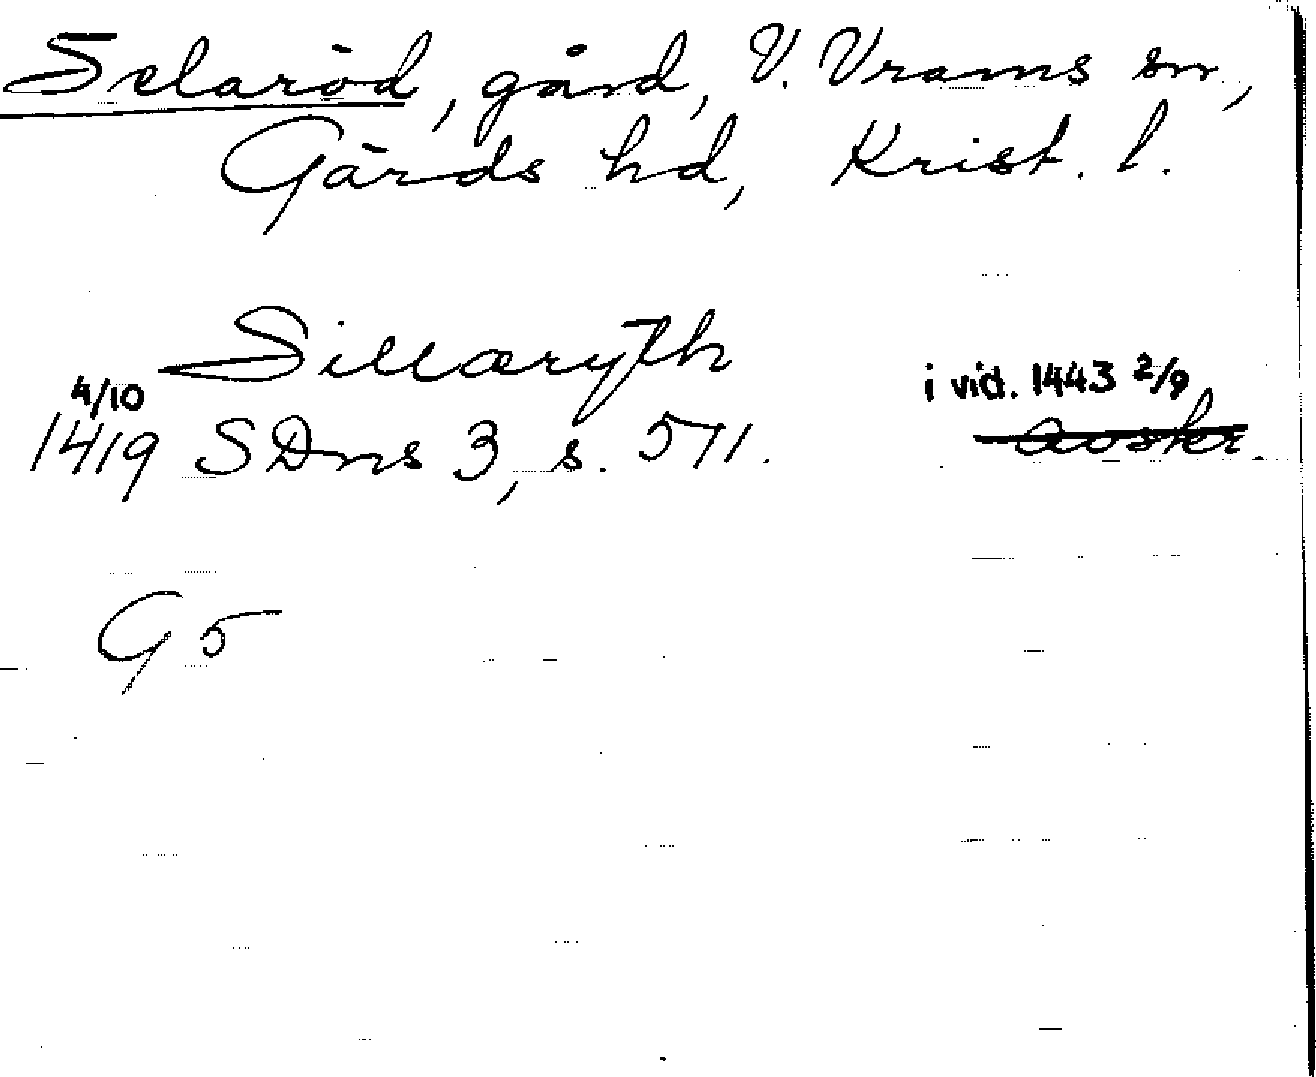 Selaröd, gård, V. Vrams sn,
Gärds hd, Krist. l.
Sillæryth
4/10 i vid. 1443 2/9
1419 SDns 3, s. 571. avskr.
G 5